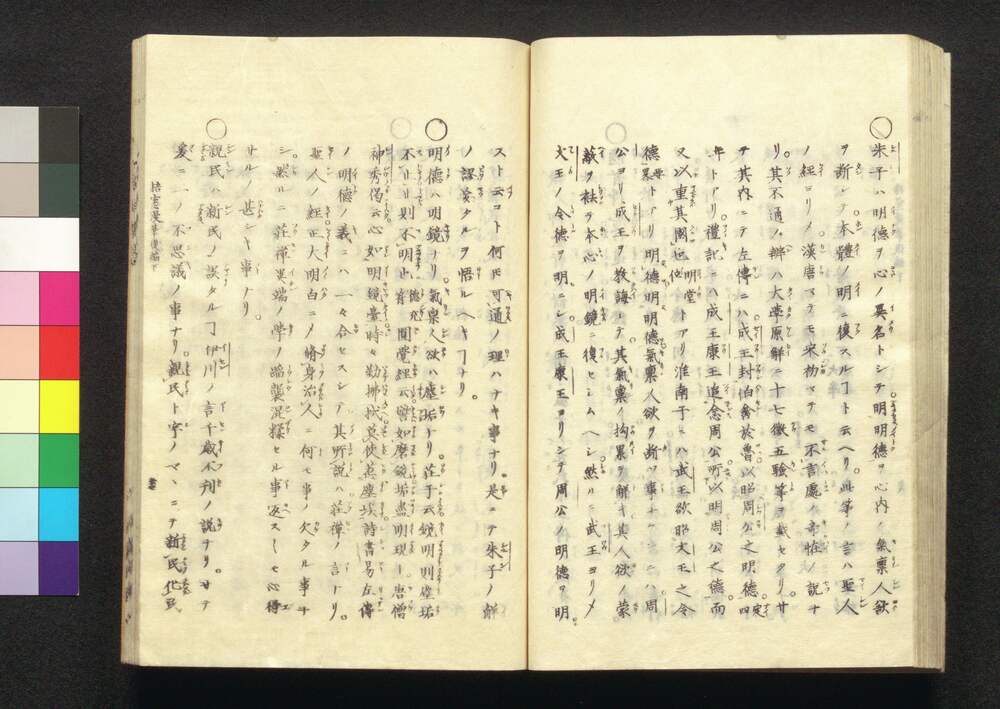 ○朱子ハ明德ヲ心ノ異名トシテ明明德ヲ心內ノ氣稟人欲
ヲ斷シテ本體ノ明ニ復スルヿト云ヘリ此等ノ言ハ聖人
ノ經ヨリ漢唐マテモ宋初マテモ不言處ノ奇怪ノ說ナ
リ其不通ノ辨ハ大學原解ニ十七徵五驗等ヲ載セタリサ
テ其內ニテ左傳ニハ成王封伯禽於魯以昭周公之明德定四
年トアリ禮記ニハ成王康王追念周公所以明周公之德而
又以重其國也明堂位トアリ淮南子ニハ武王欲昭大王之令
德トアリ明德明明德氣稟人欲ヲ斷ツ事ナラハ周
公ヨリ成王ヲ敎誨シテ其氣稟ノ拘累ヲ解キ其人欲ノ蒙
蔽ヲ袪ヲ本心ノ明鏡ニ復セシムヘシ然ルニ武王ヨリメ
大王ノ令德ヲ明ニシ成王康王ヨリシテ周公ノ明德ヲ明
スト云コト何モ可通ノ理ハナキ事ナリ是ニテ朱子ノ解
ノ謬妄タルヲ悟ルヘキヿナリ
○明德ハ明鏡ナリ氣稟人欲ハ塵垢ナリ莊子云鏡明則塵垢
不止止則不明也德充符圓覺經云譬如磨鏡垢盡明現唐僧
神秀偈云心如明鏡臺時々勤拂拭莫使惹塵埃詩書易左傳
ノ明德ノ義ニハ一々合セスシテ其所說ハ莊禪ノ言ナリ
聖人ノ經正大明白ニメ脩身治人ニ何モ事ノ欠タル事ナ
シ然ルニ莊禪異端ノ學ノ蹈襲混糅セル事返ス〳〵モ心得
サルノ甚シキ事ナリ
○親民ハ新民ノ誤タルヿ伊川ノ言千歲不刊ノ說ナリサテ
爰ニ一ノ不思議ノ事ナリ親民ト字ノマヽニテ新民化民